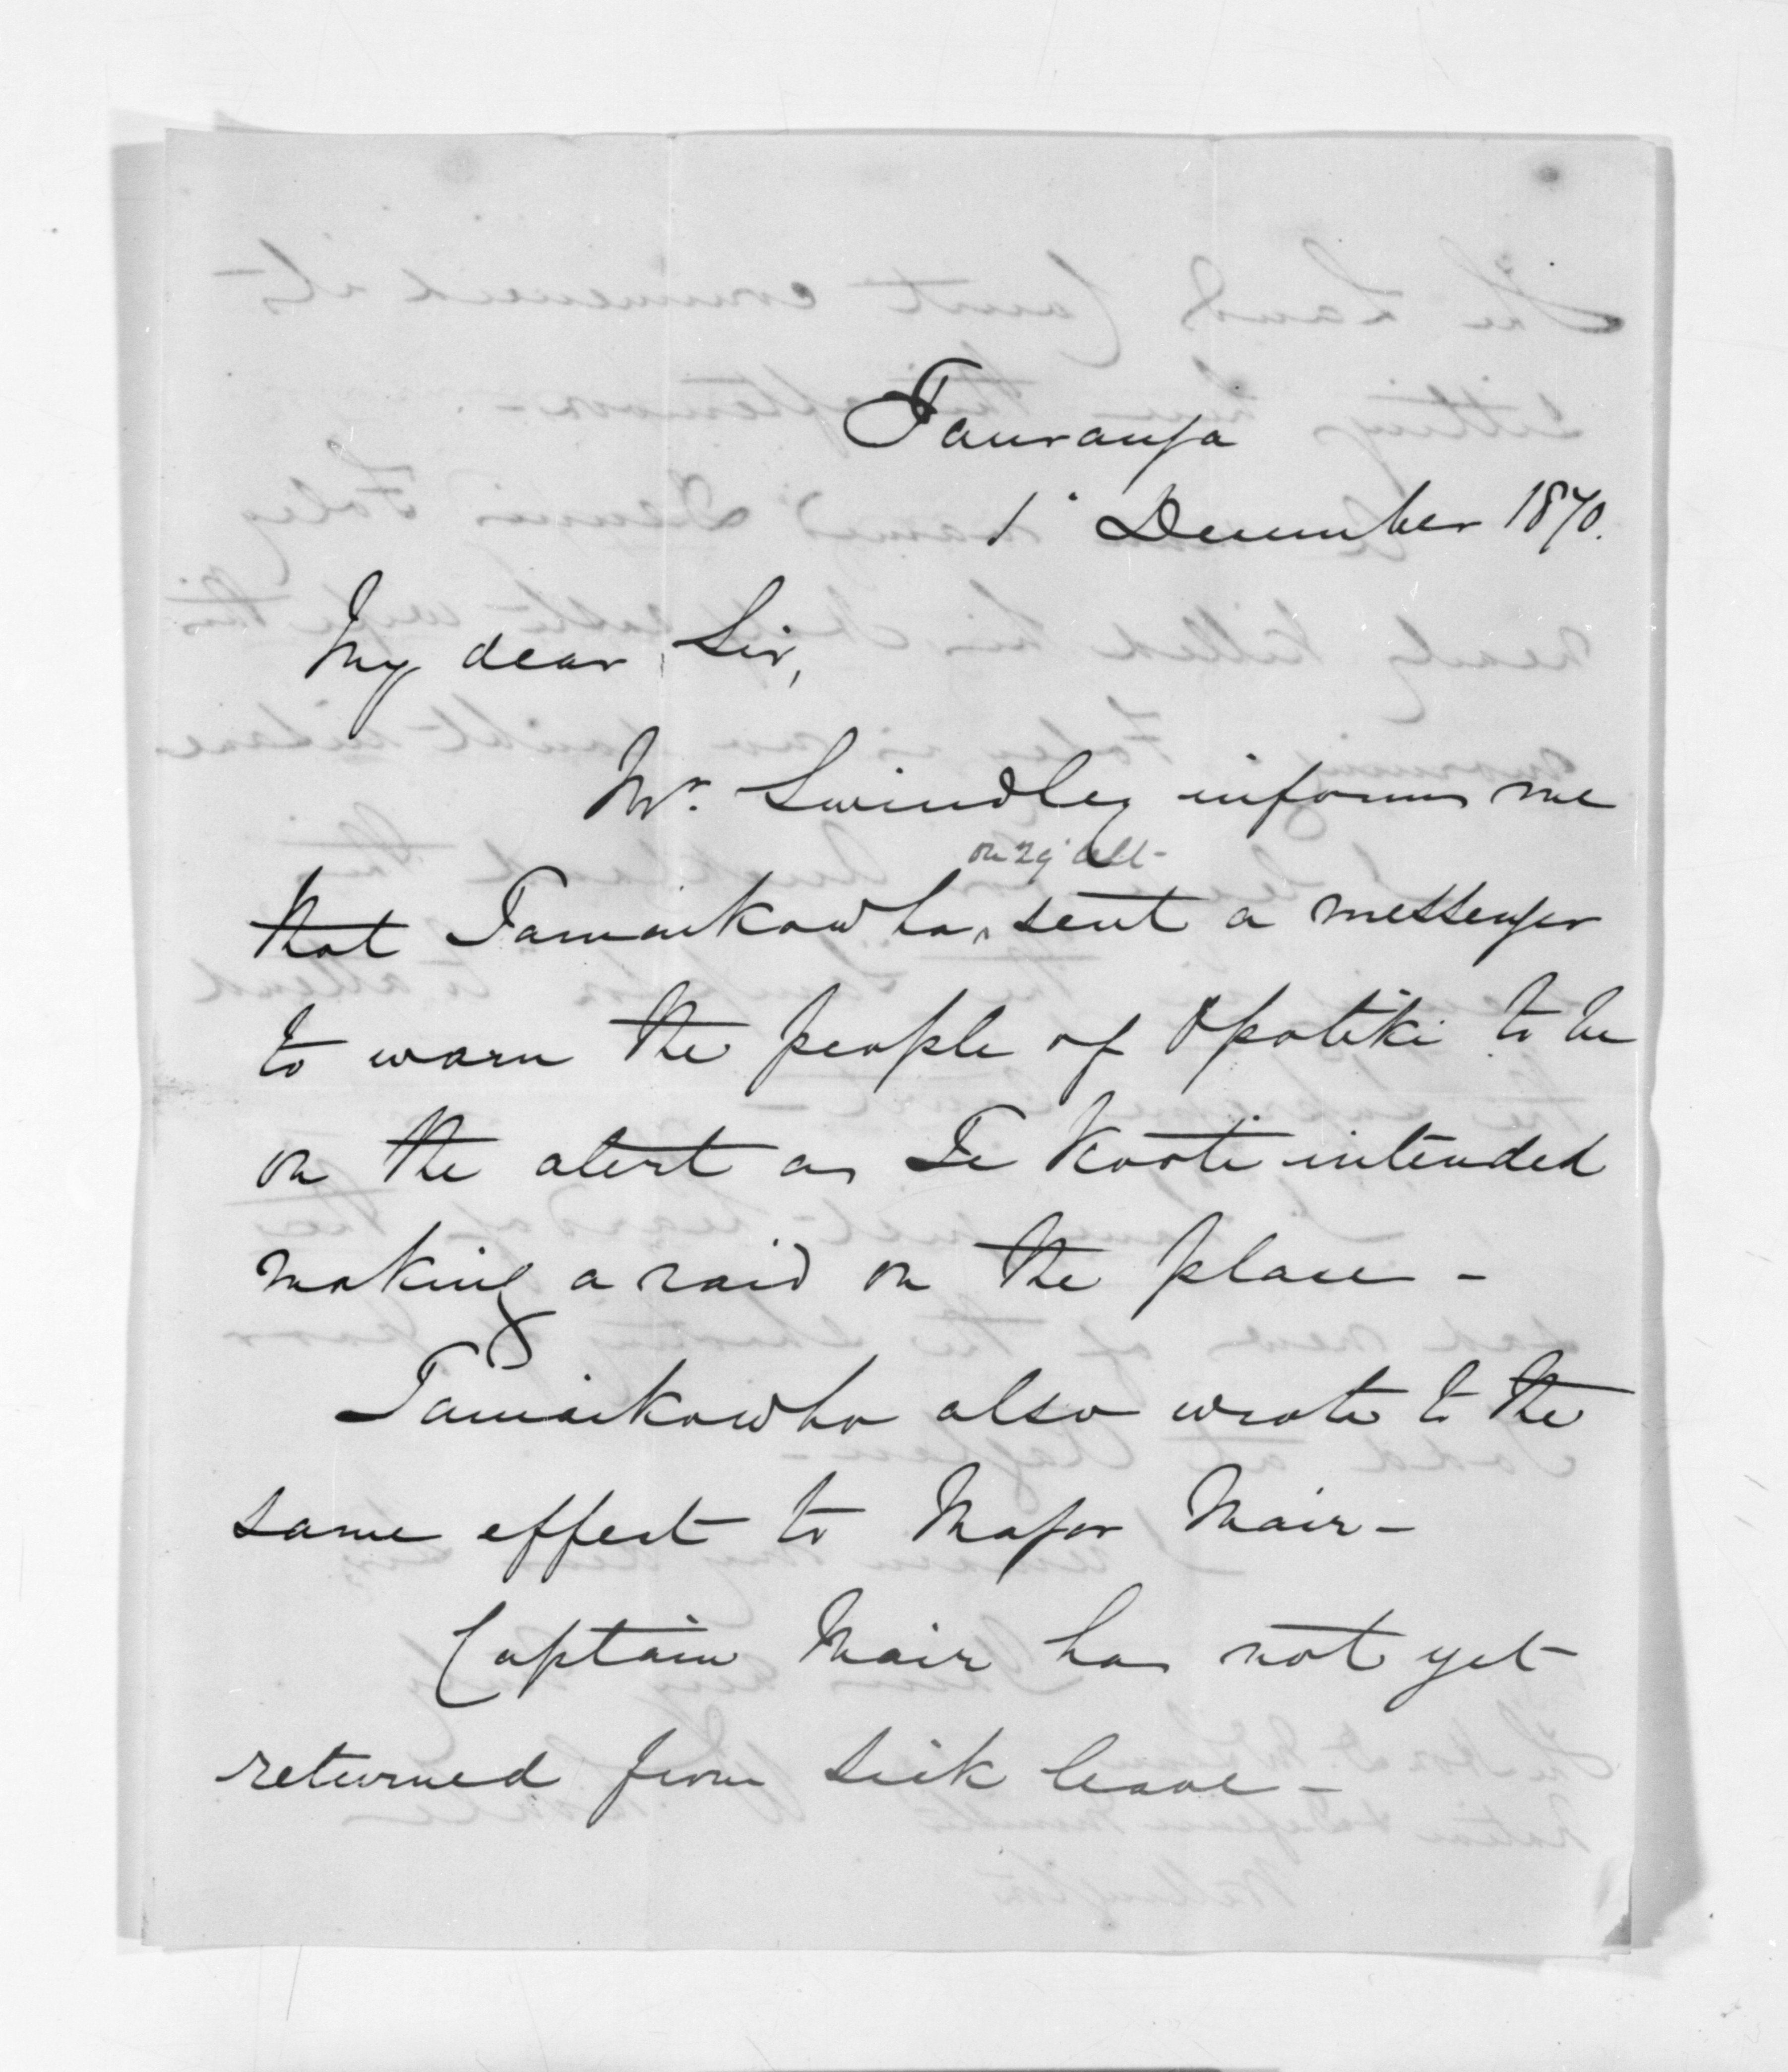 Tauranga
1' December 1870.
My dear Sir,
Mr. Swindley informs me
on 29' Ult-
that Tamaikowha, sent a messenger
to warn the people of Opotiki to be
on the alert as Te Kooti intended
making a raid on the place -
Tamaikowha also wrote to the
same effect to Major Mair -
Captain Mair has not yet
returned from sick leave -